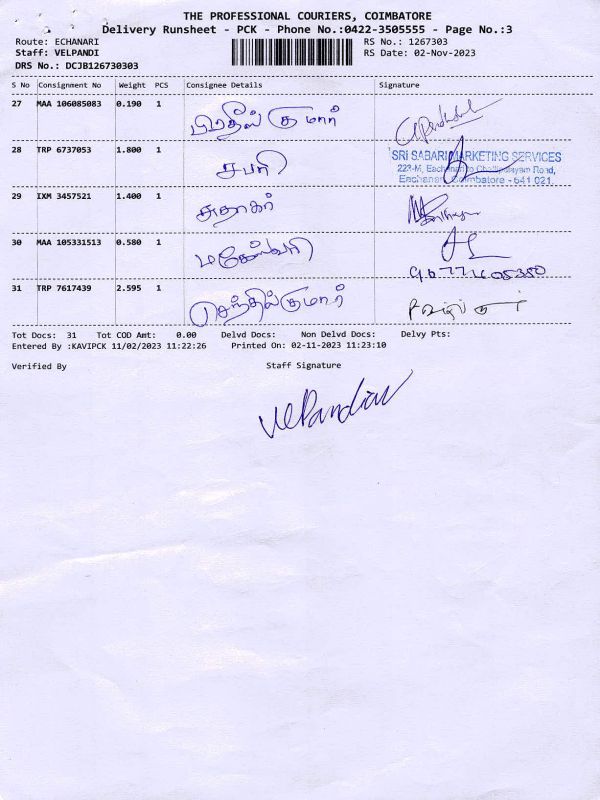 THE PROFESSIONAL COURIERS, COIMBATORE
Delivery Runsheet - PCK - Phone No.:0422-3505555 - Page No.:3
Route: ECHANARI RS No.: 1267303
Staff: VELPANDI RS Date: 02-Nov-2023
DRS No.: DCJB126730303
S No Consignment No Weight PCS Consignee Details Signature
27 MAA 106085083 0.190 1 பிரதீஸ் குமார்
28 TRP 6737053 1.800 1 சபரி
SRI SABARI MARKETING SERVICES
223-M, Eachanari to Chettipalayam Road,
Eachanari, Coimbatore - 641 021.
29 IXM 3457521 1.400 1 சுதாகர்
30 MAA 105331513 0.580 1 மகேஸ்வரி
31 TRP 7617439 2.595 1 செந்தில்குமார்
Tot Docs: 31 Tot COD Amt: 0.00 Delvd Docs: Non Delvd Docs: Delvy Pts:
Entered By :KAVIPCK 11/02/2023 11:22:26 Printed On: 02-11-2023 11:23:10
Verified By Staff Signature
VelPandian